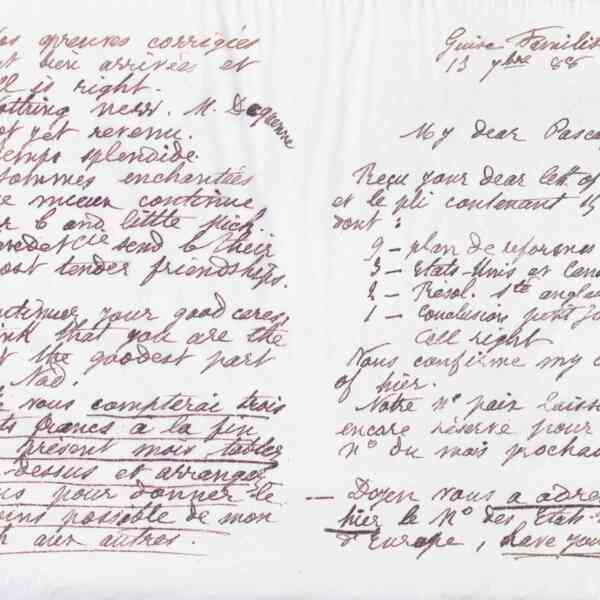 os épreuves corrigées
t bien arrivées et
ll is right.
othing new. M. Dequenne
ot yet revenu.
emps splendide.
sommes enchantées
e mieux continue
r b and little pich.
send to their
ost tender friendships.
ntinuer your good cares.
ink that you are the
t the goodest part
Nad.
vous compterai trois
ts francs à la fin
présent mois tablez
-dessus et arrangez
us pour donner le
oins possible de mon
aux autres.
Guise Familis
13 7bre 88
My dear Pasca
Reçu your dear lett. of
et le pli contenant 15
dont :
9 - plan de réformes
3 - Etats-Unis et Can
2 - Résol. 1te angla
1 - Conclusion
All right
Nous confirme my c
of hier.
Notre n° paix laiss
encore réserve pour
N° du mois procha
— Doyen vous a adres
hier le N° des Etats-
d'Europe, have you